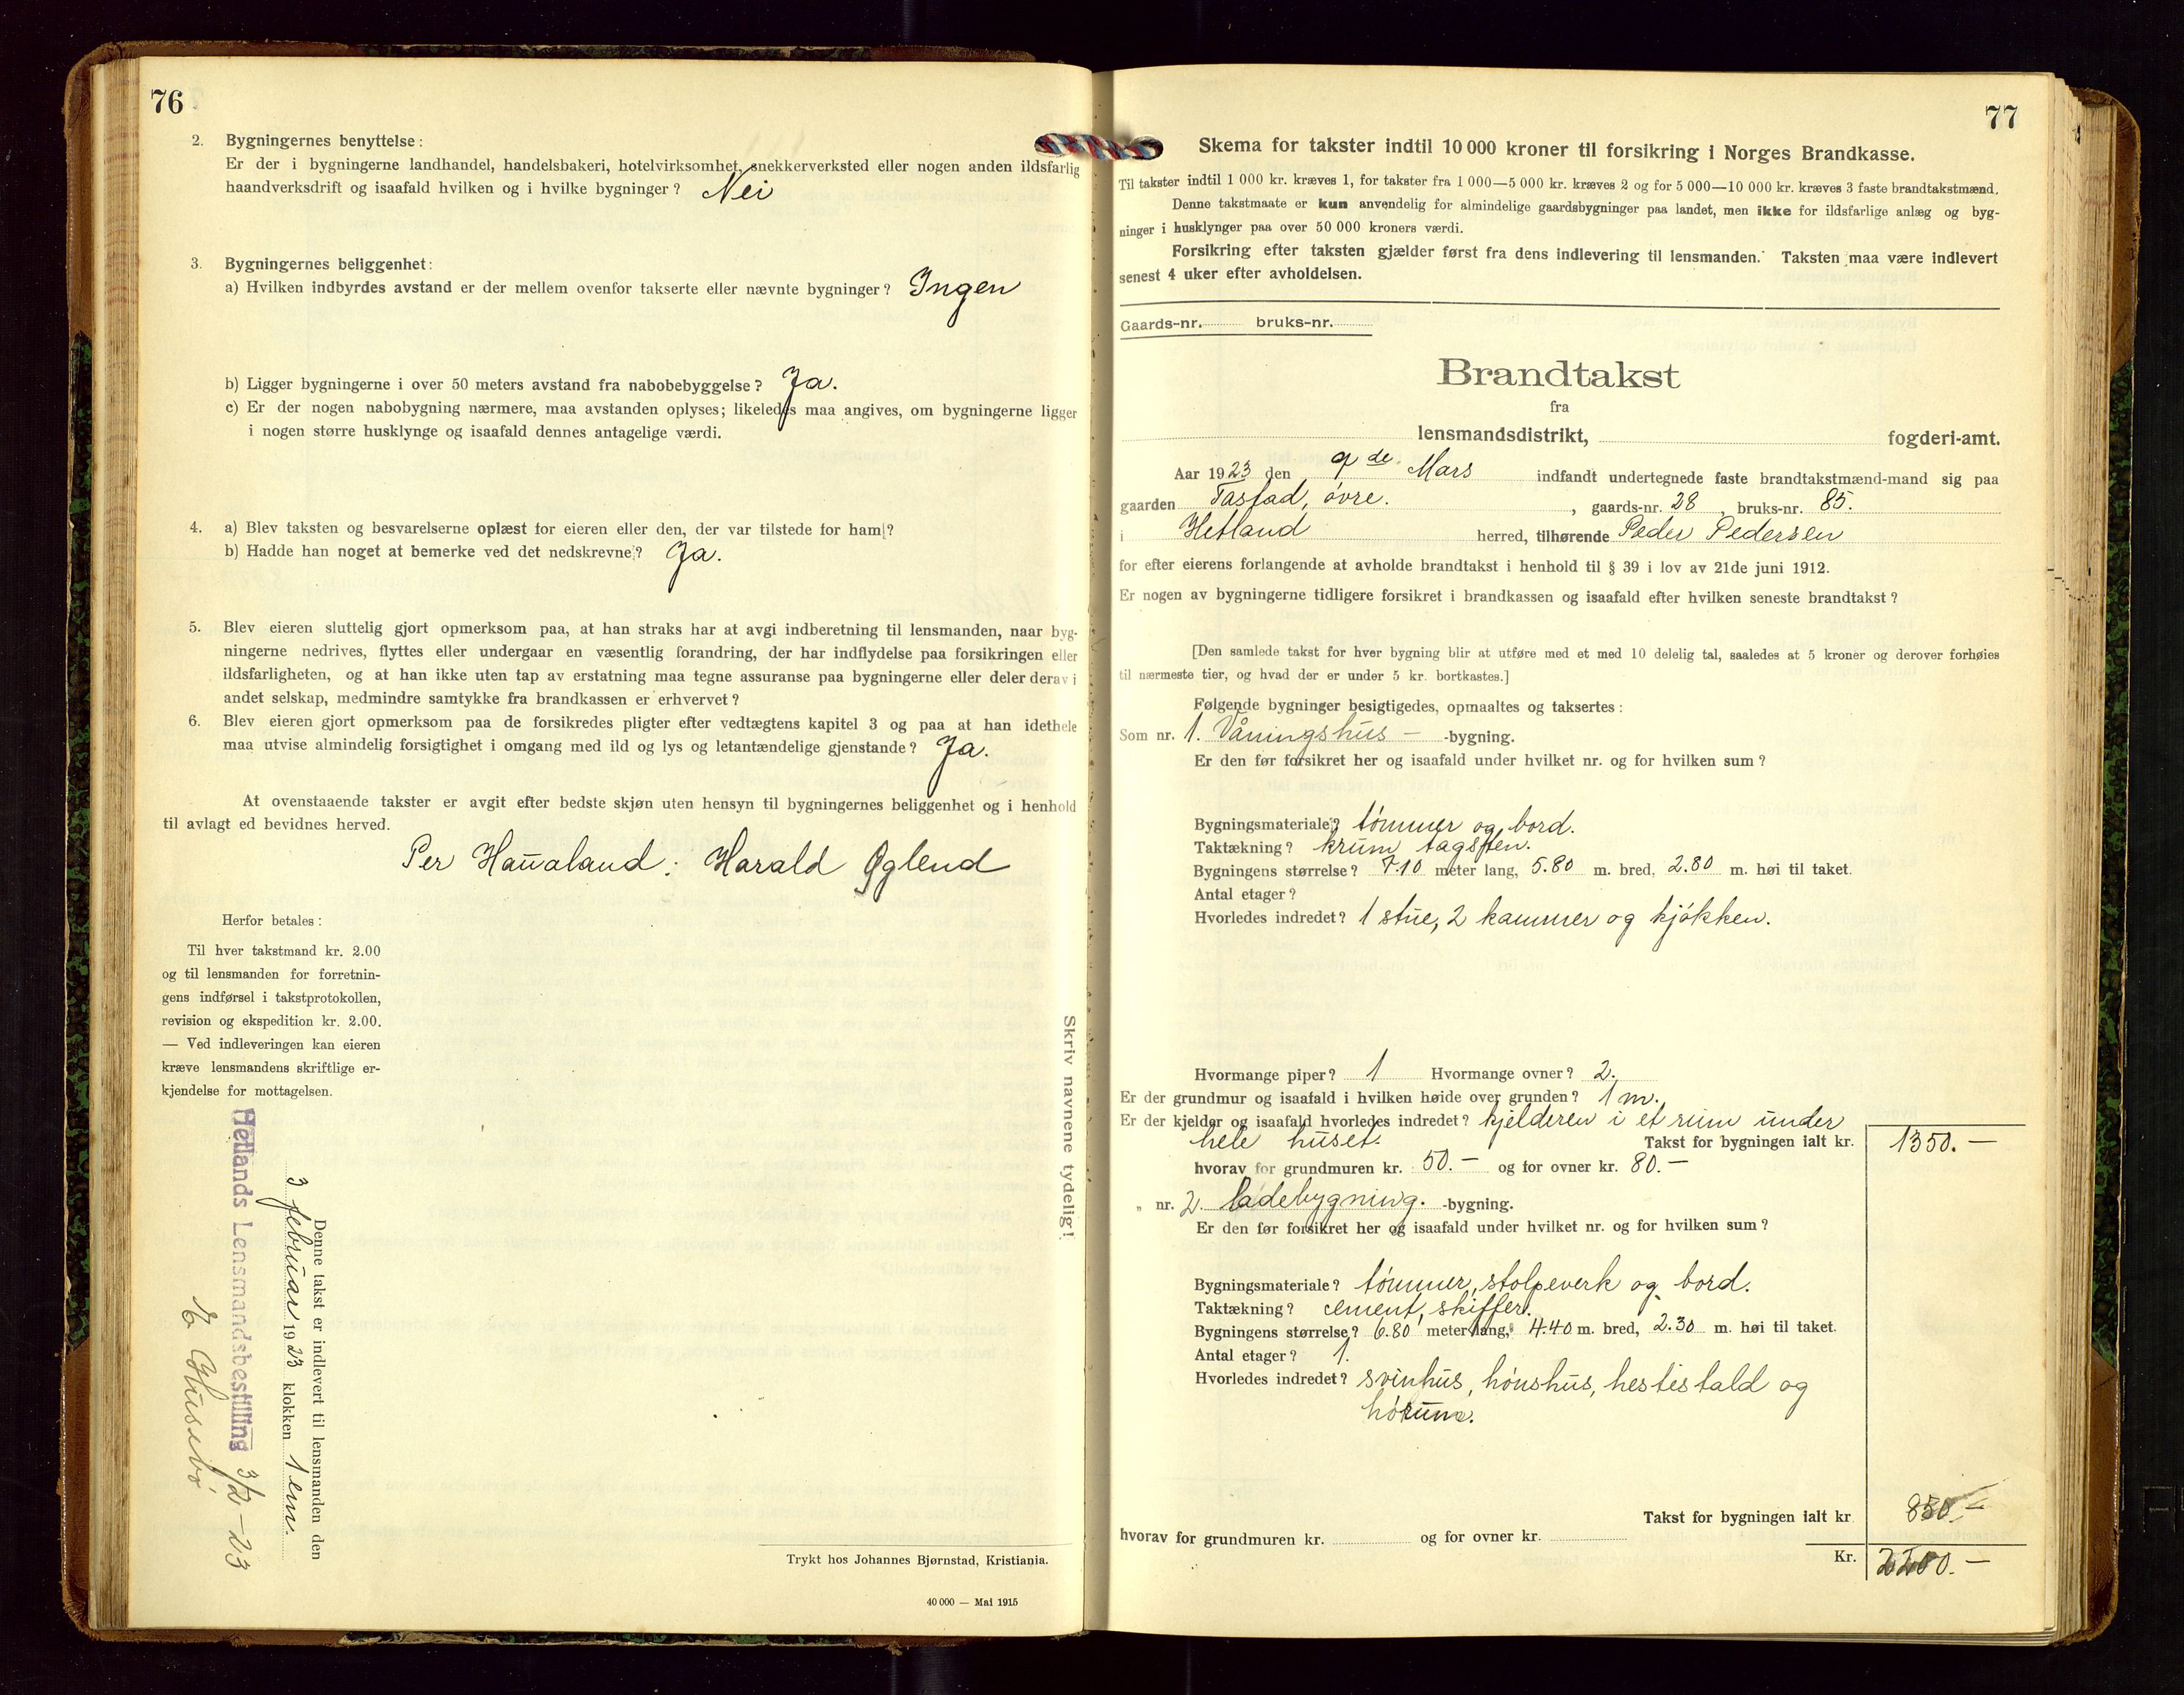 76
2. Bygningernes benyttelse:
Er der i bygningerne landhandel, handelsbakeri, hotelvirksomhet, snekkerverksted eller nogen anden ildsfarlig
haandverksdrift og isaafald hvilken og i hvilke bygninger? Nei
3. Bygningernes beliggenhet:
a) Hvilken indbyrdes avstand er der mellem ovenfor takserte eller nævnte bygninger? Ingen
b) Ligger bygningerne i over 50 meters avstand fra nabobebyggelse? Ja.
c) Er der nogen nabobygning nærmere, maa avstanden oplyses; likeledes maa angives, om bygningerne ligger
i nogen større husklynge og isaafald dennes antagelige værdi.
4. a) Blev taksten og besvarelserne oplæst for eieren eller den, der var tilstede for ham?
b) Hadde han noget at bemerke ved det nedskrevne? Ja.
5. Blev eieren sluttelig gjort opmerksom paa, at han straks har at avgi indberetning til lensmanden, naar byg-
ningerne nedrives, flyttes eller undergaar en væsentlig forandring, der har indflydelse paa forsikringen eller
ildsfarligheten, og at han ikke uten tap av erstatning maa tegne assuranse paa bygningerne eller deler derav i
andet selskap, medmindre samtykke fra brandkassen er erhvervet?
6. Blev eieren gjort opmerksom paa de forsikredes pligter efter vedtægtens kapitel 3 og paa at han idethele
maa utvise almindelig forsigtighet i omgang med ild og lys og letantændelige gjenstande? Ja.
At ovenstaaende takster er avgit efter bedste skjøn uten hensyn til bygningernes beliggenhet og i henhold
til avlagt ed bevidnes herved.
Per Haualand. Harald Øglend
Herfor betales:
Til hver takstmand kr. 2.00
og til lensmanden for forretnin-
gens indførsel i takstprotokollen,
revision og ekspedition kr. 2.00.
— Ved indleveringen kan eieren
kræve lensmandens skriftlige er-
kjendelse for mottagelsen.
Skriv navnene tydelig!
Denne takst er indlevert til lensmanden den
3 februar 1923 klokken 1 em.
Hetlands Lensmandsbestilling 3/2-23
E Husebø
Trykt hos Johannes Bjørnstad, Kristiania.
40 000 — Mai 1915
77
Skema for takster indtil 10 000 kroner til forsikring i Norges Brandkasse.
Til takster indtil 1 000 kr. kræves 1, for takster fra 1 000—5 000 kr. kræves 2 og for 5 000—10 000 kr. kræves 3 faste brandtakstmænd.
Denne takstmaate er kun anvendelig for almindelige gaardsbygninger paa landet, men ikke for ildsfarlige anlæg og byg-
ninger i husklynger paa over 50 000 kroners værdi.
Forsikring efter taksten gjælder først fra dens indlevering til lensmanden. Taksten maa være indlevert
senest 4 uker efter avholdelsen.
Gaards-nr. bruks-nr.
Brandtakst
fra
lensmandsdistrikt, fogderi-amt.
Aar 1923 den 9de Mars indfandt undertegnede faste brandtakstmænd-mand sig paa
gaarden Tastad, øvre. , gaards-nr. 28 , bruks-nr. 85.
i Hetland herred, tilhørende Peder Pedersen
for efter eierens forlangende at avholde brandtakst i henhold til § 39 i lov av 21de juni 1912.
Er nogen av bygningerne tidligere forsikret i brandkassen og isaafald efter hvilken seneste brandtakst?
[Den samlede takst for hver bygning blir at utføre med et med 10 delelig tal, saaledes at 5 kroner og derover forhøies
til nærmeste tier, og hvad der er under 5 kr. bortkastes.]
Følgende bygninger besigtigedes, opmaaltes og taksertes:
Som nr. 1. Våningshus — -bygning.
Er den før forsikret her og isaafald under hvilket nr. og for hvilken sum?
Bygningsmateriale? tømmer og bord.
Taktækning? krum tagsten.
Bygningens størrelse? 7.10 meter lang, 5.80 m. bred, 2.80 m. høi til taket.
Antal etager?
Hvorledes indredet? 1 stue, 2 kammer og kjøkken.
Hvormange piper? 1 Hvormange ovner? 2.
Er der grundmur og isaafald i hvilken høide over grunden? 1 m.
Er der kjelder og isaafald hvorledes indredet? kjelderen i et rum under
hele huset. Takst for bygningen ialt kr. 1350.—
hvorav for grundmuren kr. 50.— og for ovner kr. 80.—
„ nr. 2. ladebygning. -bygning.
Er den før forsikret her og isaafald under hvilket nr. og for hvilken sum?
Bygningsmateriale? tømmer, stolpeverk og bord.
Taktækning? cement, skiffer.
Bygningens størrelse? 6.80 meter lang, 4.40 m. bred, 2.30 m. høi til taket.
Antal etager? 1.
Hvorledes indredet? svinhus, hønshus, hestestald og
hørum.
Takst for bygningen ialt kr. 850.—
hvorav for grundmuren kr. og for ovner kr.
Kr. 2200.—